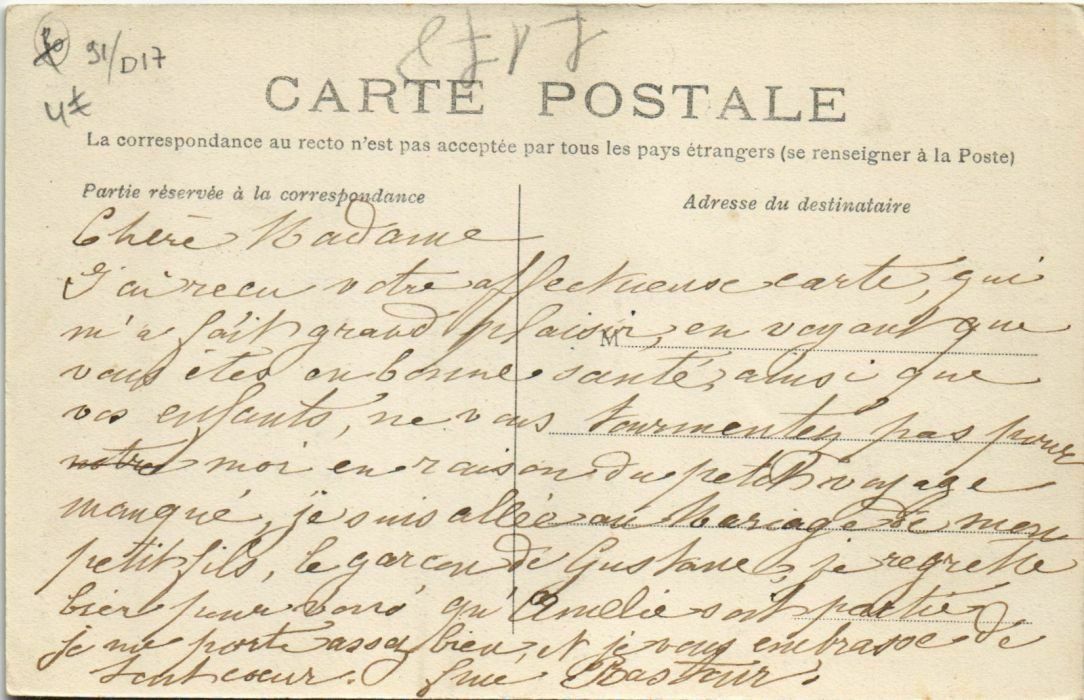 91/D17
4
CARTE POSTALE
La correspondance au recto n'est pas acceptée par tous les pays étrangers (se renseigner à la Poste)
Partie réservée à la correspondance
Adresse du destinataire
M
Chère Madame
J'ai recu votre affectueuse carte, qui
m'a fait grand plaisir, en voyant que
vous êtes en bonne santé, ainsi que
vos enfants, ne vous tourmentez pas pour
notre moi en raison du petit voyage
manqué, je suis allée au Mariage de mon
petit fils, le garcon de Gustave, je regrette
bien pour vous qu'Amelie soit partie
je me porte assez bien, et je vous embrasse de
tout coeur.